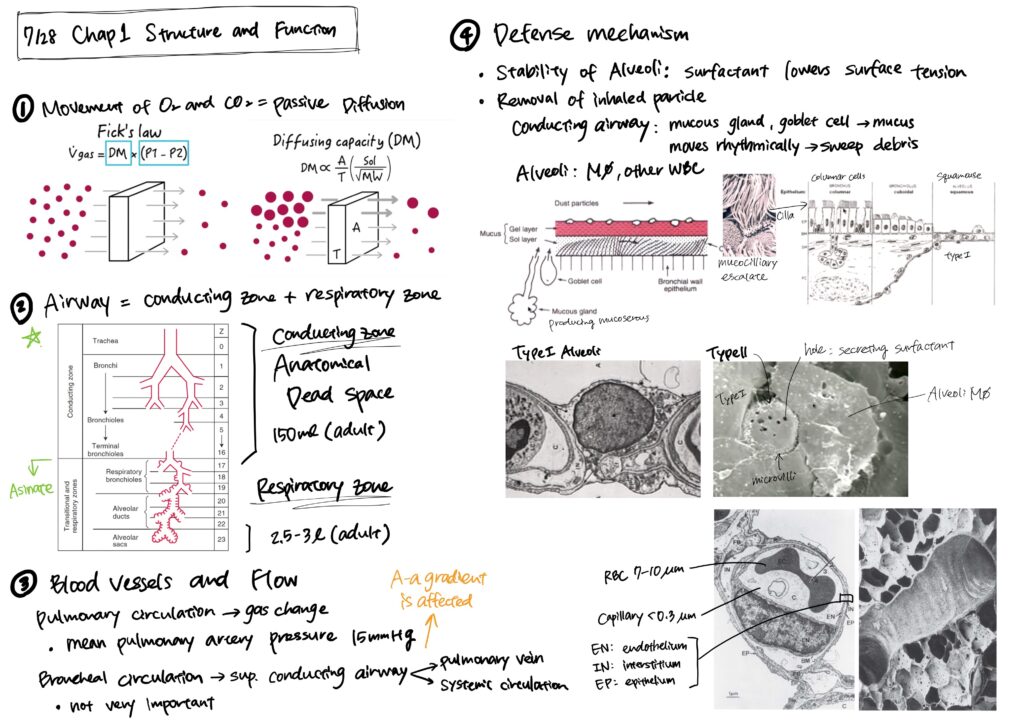 7/28 Chap1 Structure and Function
① Movement of O2 and CO2 = Passive Diffusion
Fick's law
V̇gas = DM × (P1 - P2)
Diffusing capacity (DM)
DM ∝ A/T (Sol/√MW)
A
T
② Airway = conducting zone + respiratory zone
Conducting zone
Transitional and respiratory zones
Trachea
Bronchi
Bronchioles
Terminal bronchioles
Respiratory bronchioles
Alveolar ducts
Alveolar sacs
Z
0
1
2
3
4
5
16
17
18
19
20
21
22
23
Asinate
Conducting zone
Anatomical
Dead Space
150ml (adult)
Respiratory zone
2.5-3l (adult)
③ Blood vessels and Flow
Pulmonary circulation → gas change
• mean pulmonary artery pressure 15mmHg
A-a gradient
is affected
Broncheal circulation → sup. conducting airway
Pulmonary vein
Systemic circulation
• not very important
④ Defense mechanism
• Stability of Alveoli: surfactant lowers surface tension
• Removal of inhaled particle
Conducting airway: mucous gland, goblet cell → mucus
moves rhythmically → sweep debris
Alveoli: MØ, other WBC
Dust particles
Mucus
Gel layer
Sol layer
Goblet cell
Bronchial wall
epithelium
Mucous gland
producing mucoserous
Cilla
mucocilliary
escalate
columnar cells
Squamouse
Epithelium
BRONCHUS
columnar
BRONCHIOLUS
cuboidal
ALVEOLUS
squamous
type I
Type I Alveoli
Type II
hole: secreting surfactant
Type I
Alveoli MØ
microvilli
RBC 7-10 μm
Capillary <0.3 μm
EN: endothelium
IN: interstitium
EP: epithelium
FB
IN
EC
C
EN
IN
EP
EN
BM
EP
C
1μm